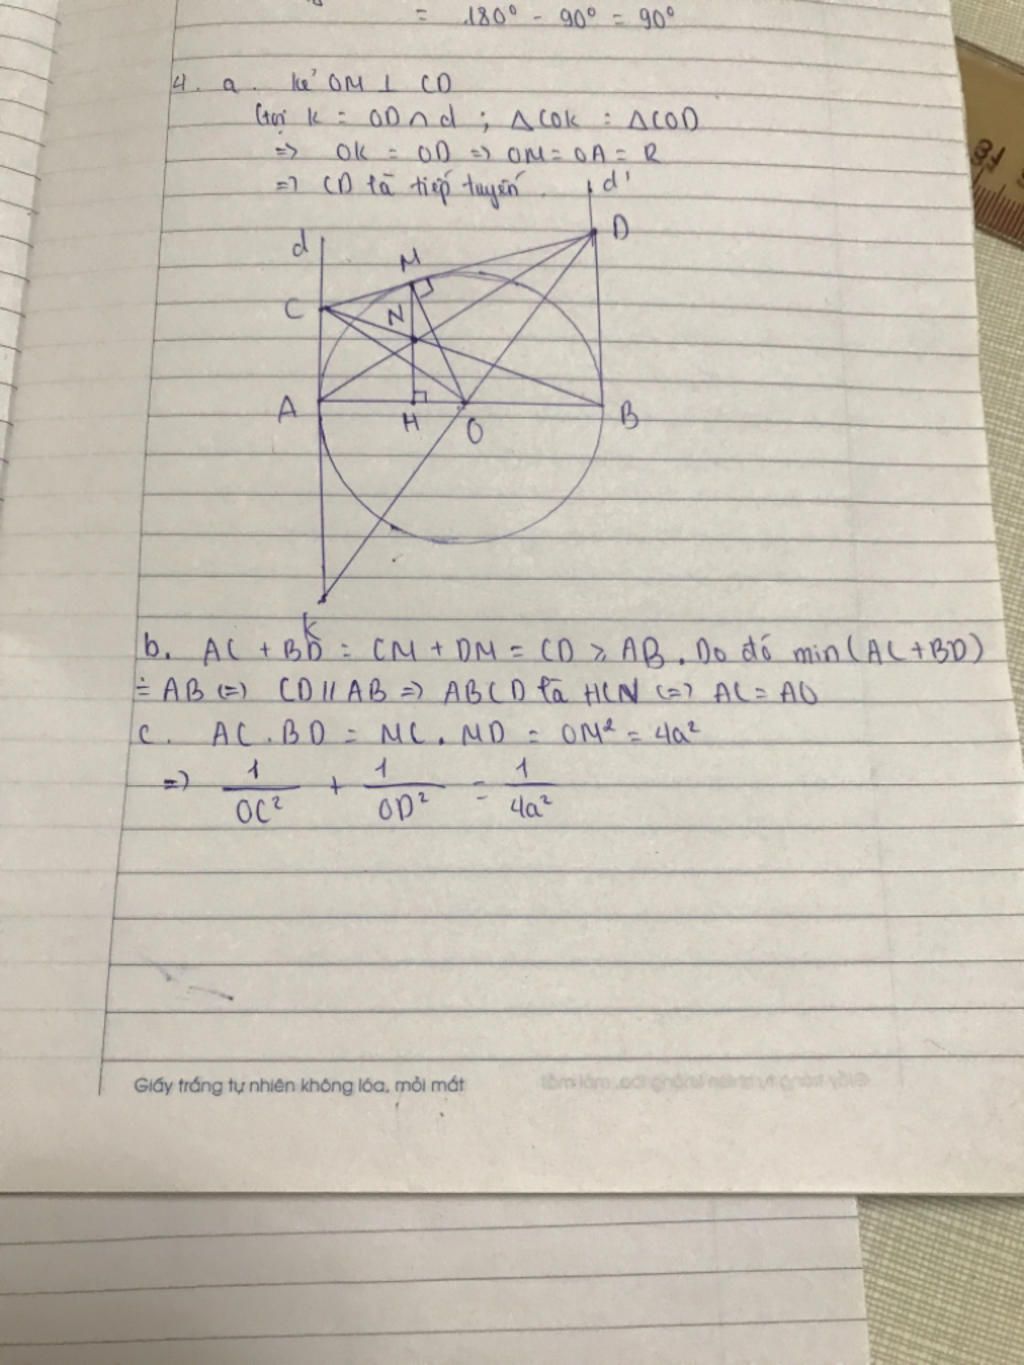 = 180° - 90° = 90°
4. a. kẻ OM ⊥ CD
Gọi k = OD ∩ d ; △COK = △COD
=> OK = OD => OM = OA = R
=> CD là tiếp tuyến.
d'
D
d
M
C
N
A
H
O
B
K
b. AC + BD = CM + DM = CD ≥ AB. Do đó min(AC+BD)
= AB <=> CD // AB => ABCD là HCN <=> AC = AO
c. AC.BD = MC.MD = OM² = 4a²
=> 1/OC² + 1/OD² = 1/4a²
Giấy trắng tự nhiên không lóa, mỏi mắt